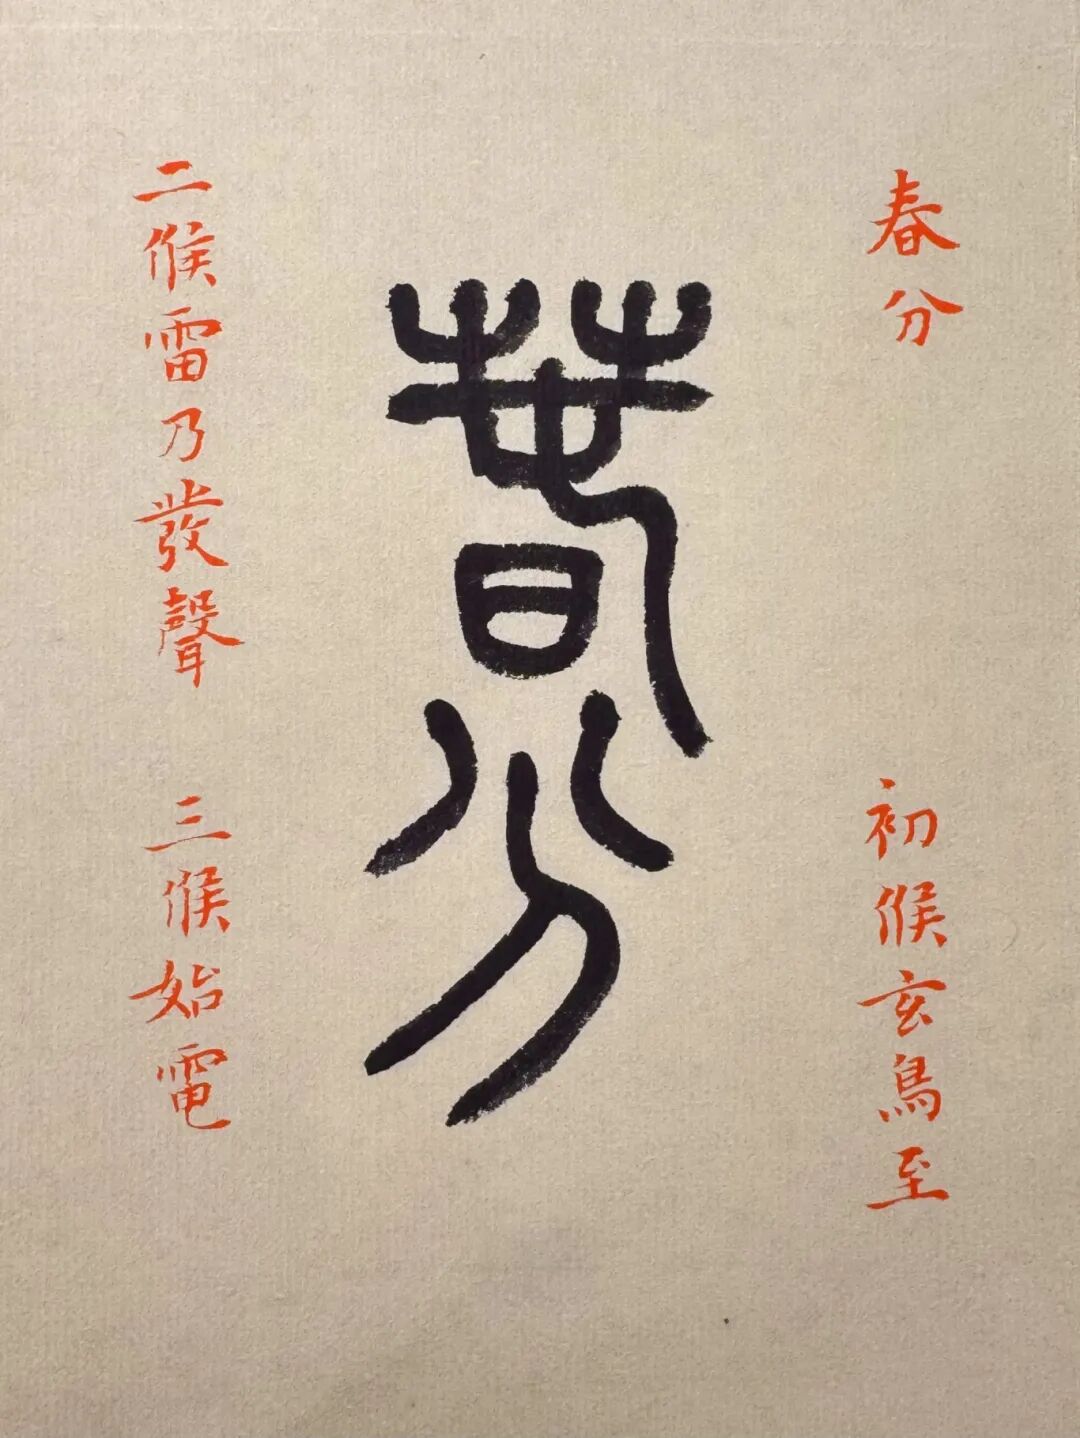 春分
初候玄鳥至
春分
二候雷乃發聲
三候始電